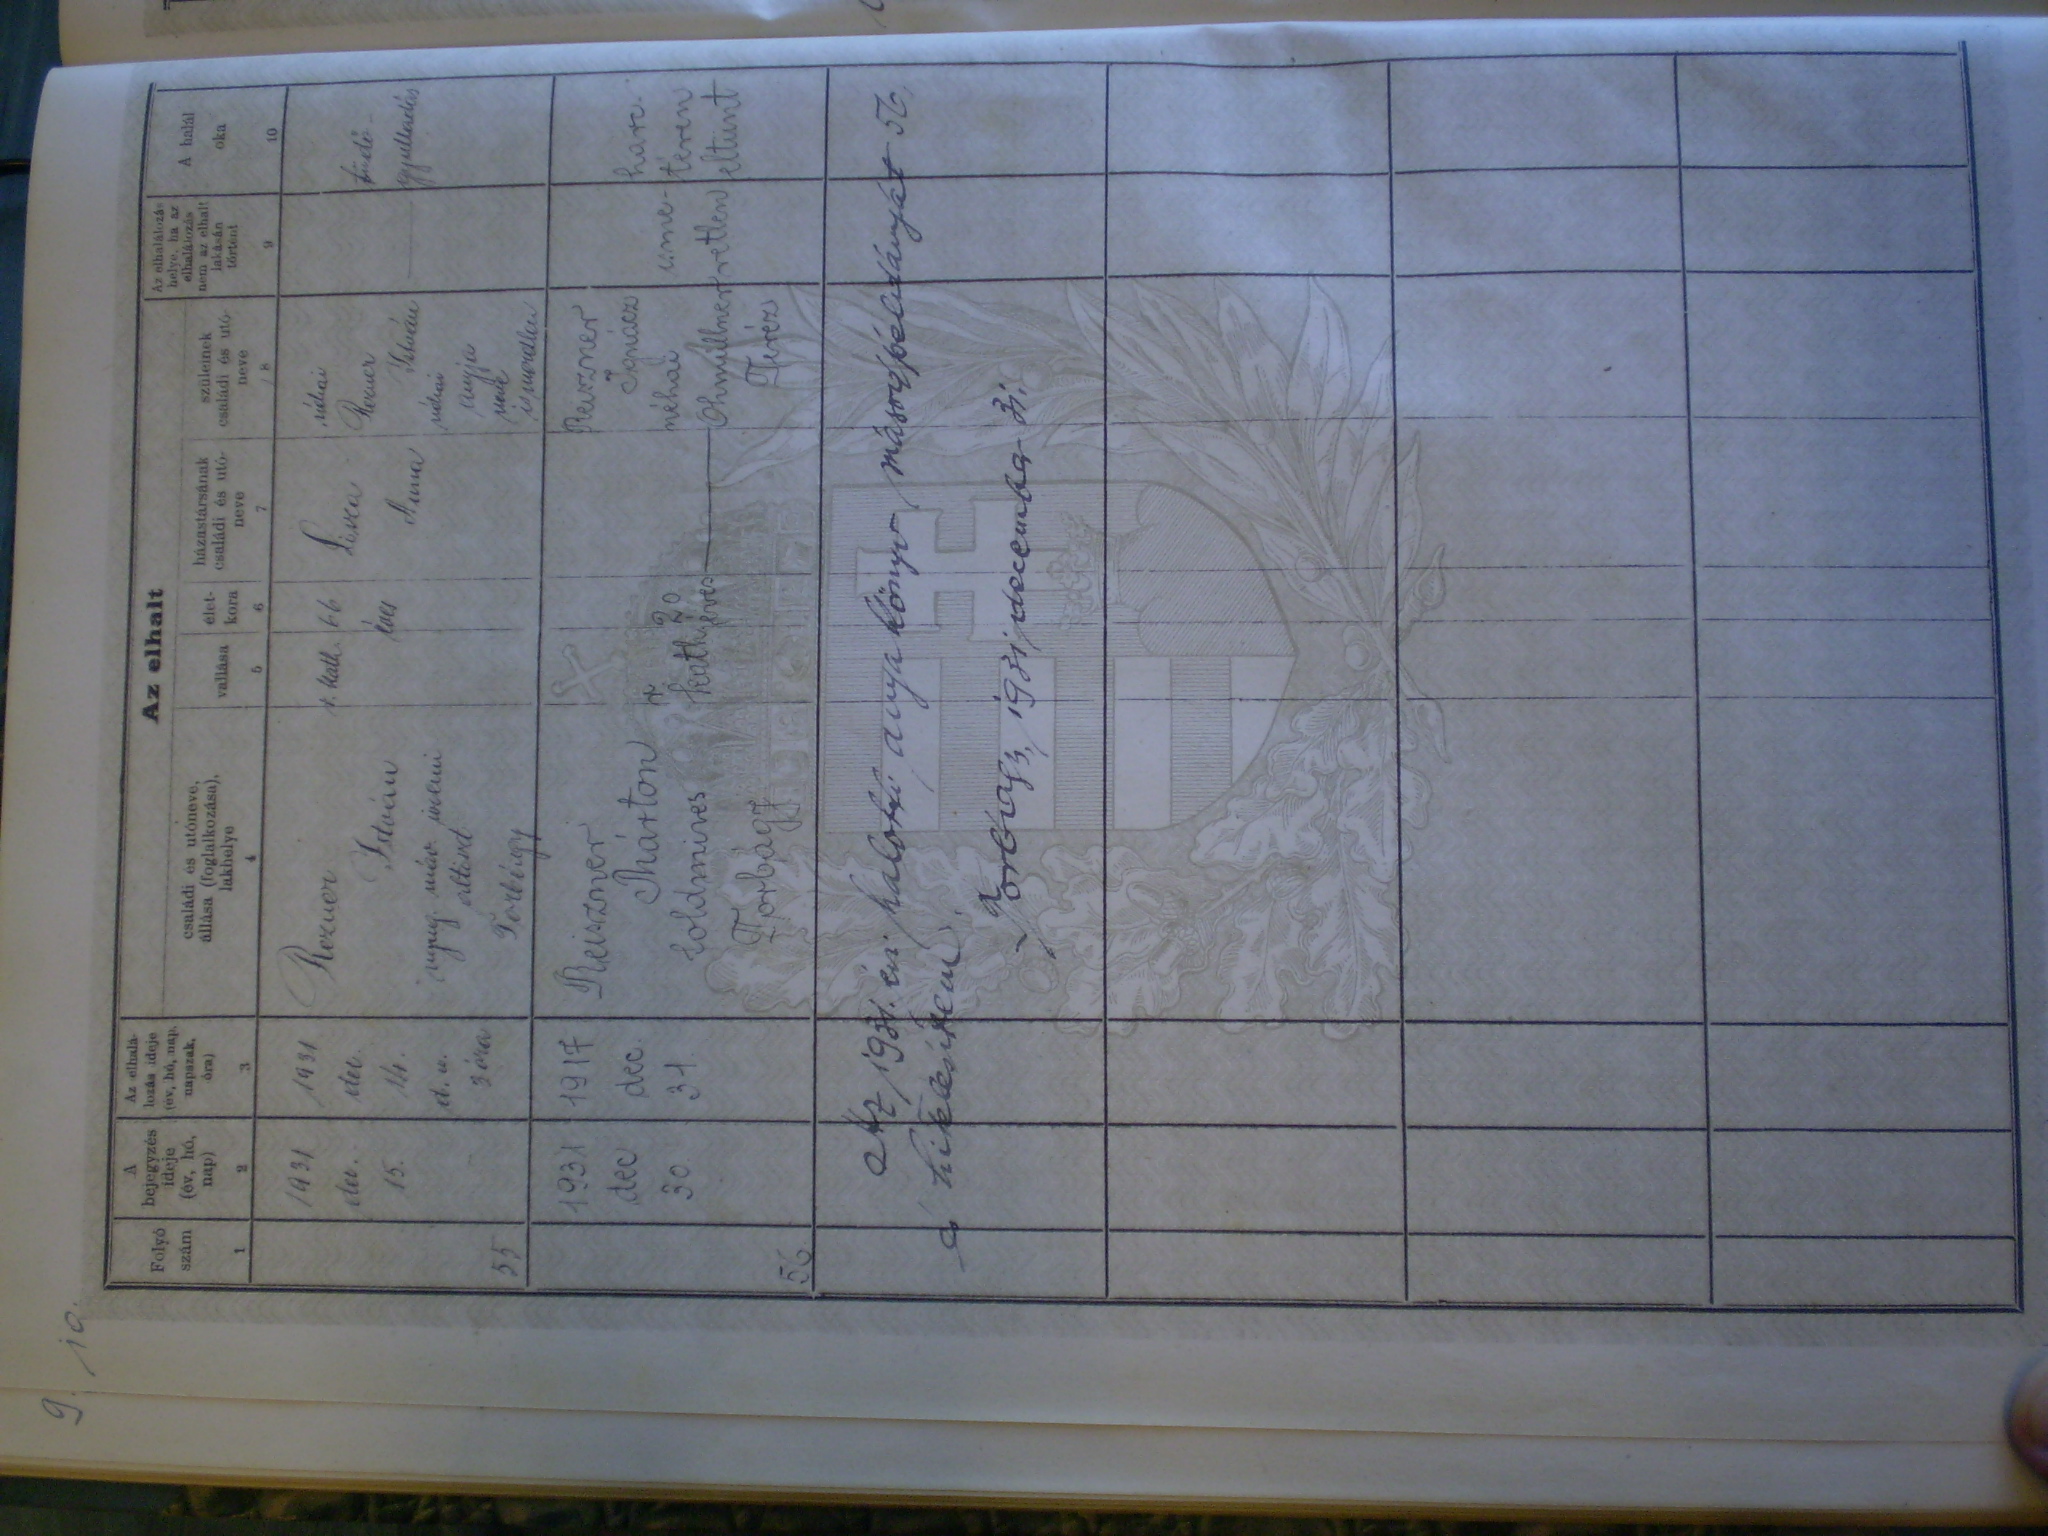 9. 10.
Az elhalt
Folyó
szám
1
A
bejegyzés
ideje
(év, hó,
nap)
2
Az elhalá-
lozás ideje
(év, hó, nap,
napszak,
óra)
3
családi és utóneve,
állása (foglalkozása),
lakhelye
4
vallása
5
élet-
kora
6
házastársának
családi és utó-
neve
7
szüleinek
családi és utó-
neve
8
Az elhalálozás
helye, ha az
elhalálozás
nem az elhalt
lakásán
történt
9
A halál
oka
10
55
1931
dec.
15.
1931
dec.
14.
d. u.
3 óra
István
nyug. máv
Torbágy
r. kath.
66
éves
Anna
néhai
István
néhai
anyja
neve
ismeretlen
tüdő-
56.
1931
dec
30
1917
dec.
31.
Reiszner
Márton
földmíves
Torbágy
r
kath.
20
éves
Reiszner
Ignácz
néhai
Ohmüllner
Teréz
isme-
retlen
harc-
téren
eltünt
Az 1931. évi halotti anyakönyv másodpéldányát 56,
Torbágy, 1931 december 31.